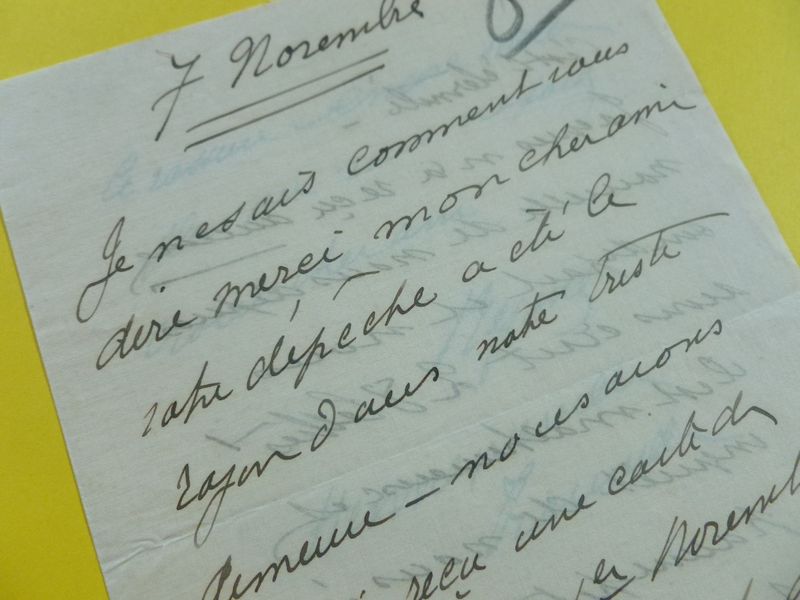 7 Novembre
Je ne sais comment vous
dire merci mon cher ami
votre dépêche a été le
rayon dans notre triste
demeure – nous avions
reçu une carte du
1er Novembre